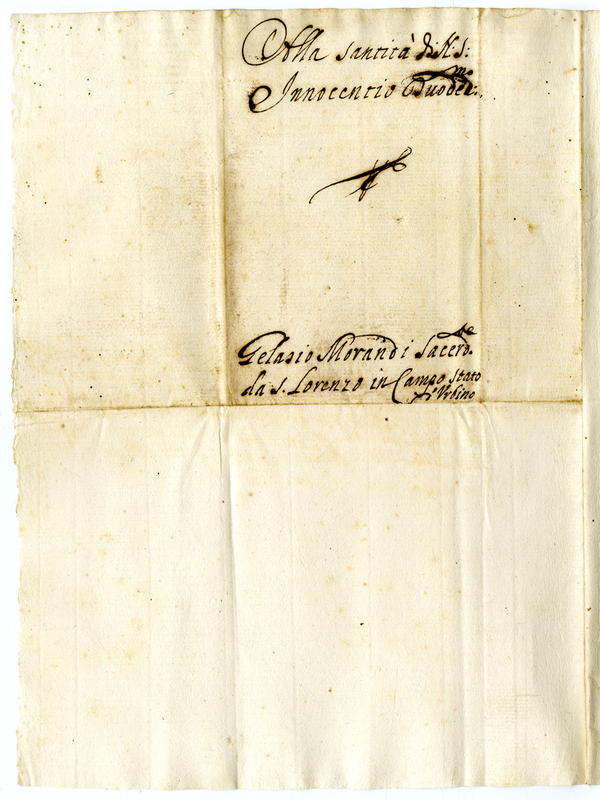 Alla Santità di N: S:
Innocentio Duodec.mo
Gelasio Morandi Sacerd.te
da S. Lorenzo in Campo Stato
di Urbino